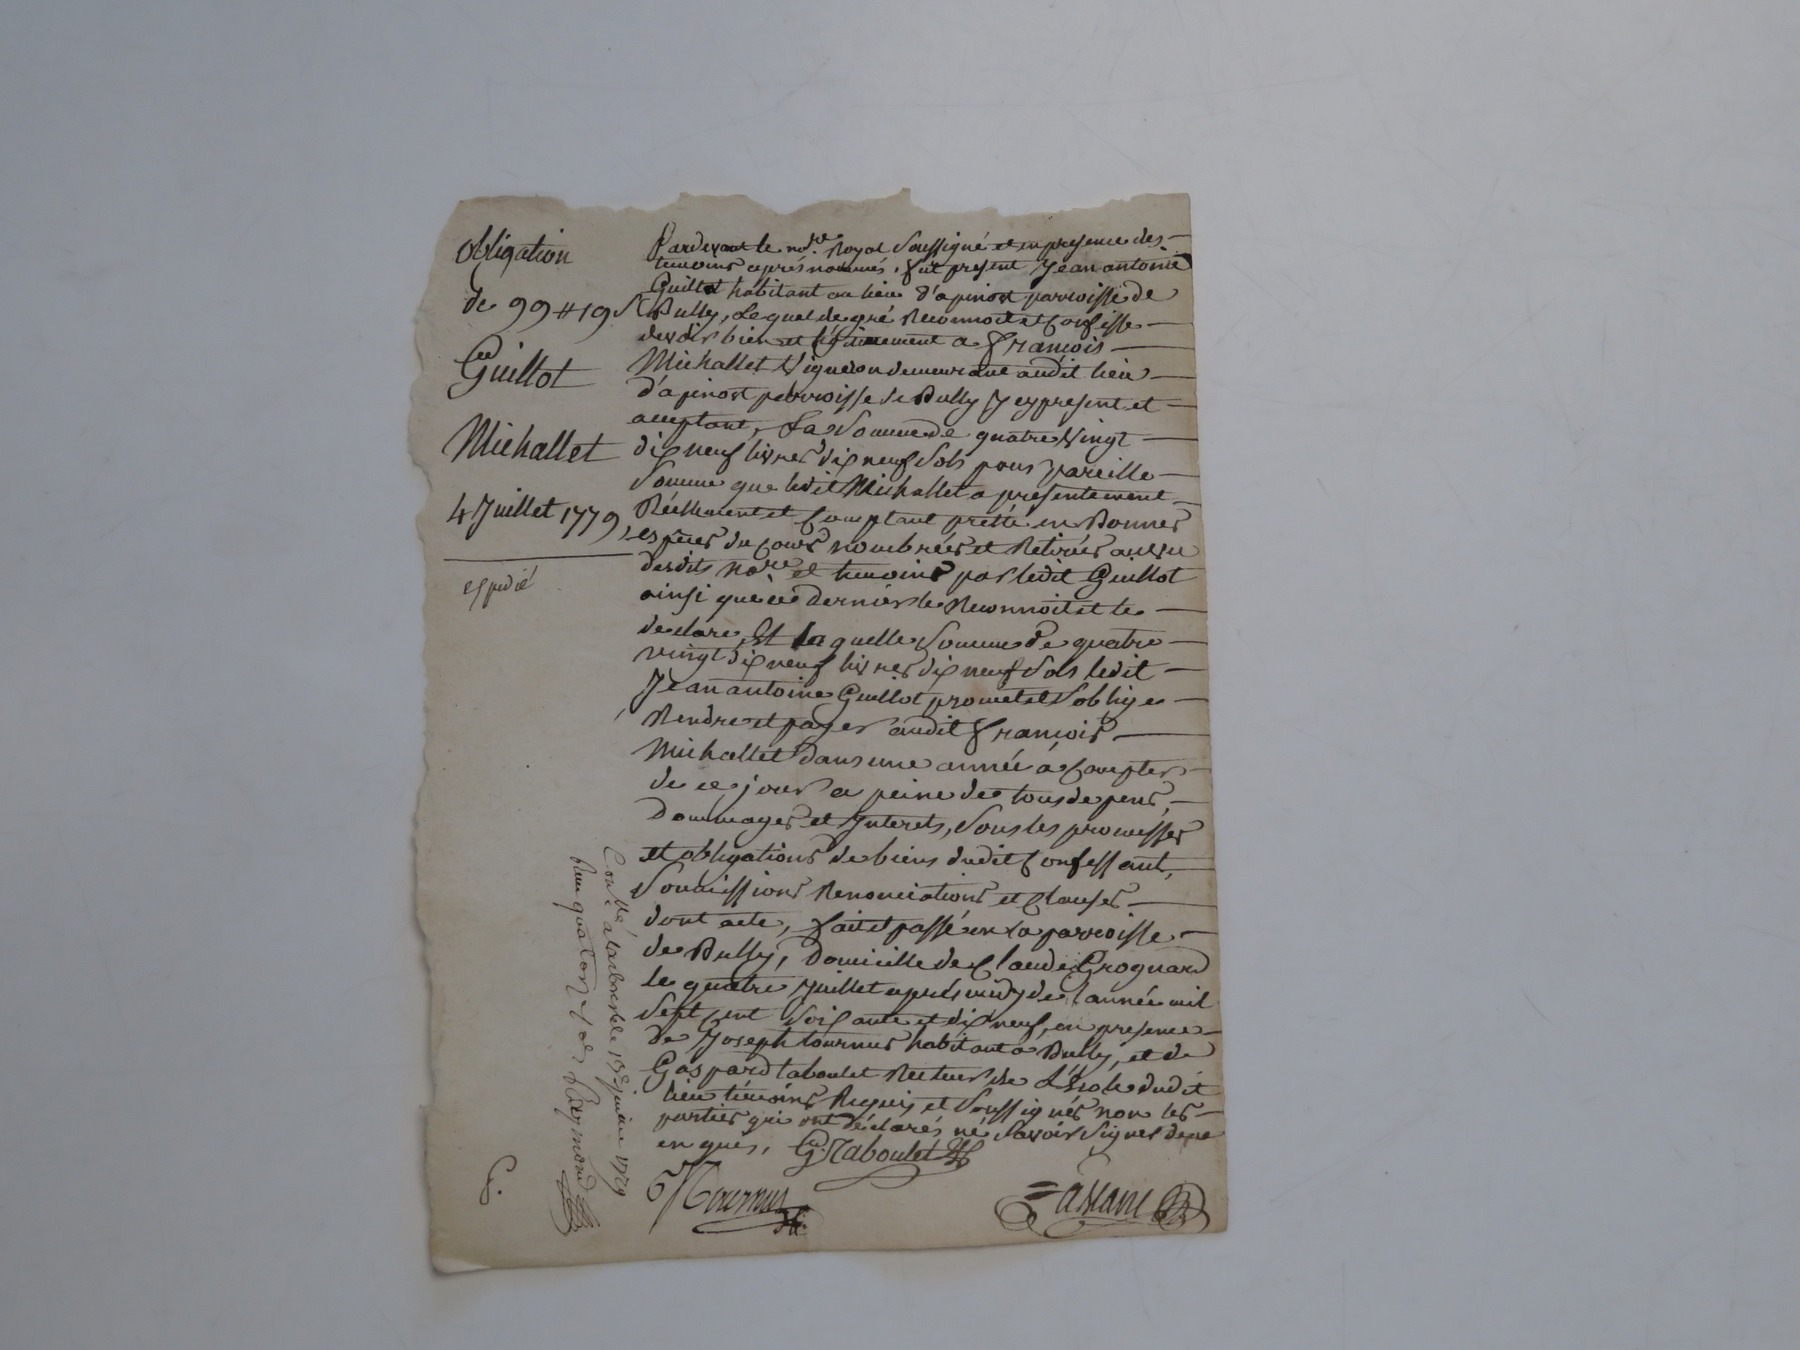 obligation
de 99 # 19 s
Guillot
Michallet
4 Juillet 1779
expedié
Pardevant le nore. Royal soussigné et en presence des
temoins aprés nommés, fut present Jean antoine
Guillot habitant au lieu d'apinost parroisse de
Bully, Lequel de gré Reconnoit et Confesse
devoir bien et légitimement a François
Michallet Vigneron demeurant audit lieu
d'apinost parroisse de Bully Jcy present et
acceptant, La Somme de quatre Vingt
dix neuf livres dix neuf Sols pour pareille
Somme que ledit Michallet a presentement
Réellement et Comptant pretté en Bonnes
espèces du Cours nombrées et Retirées au vu
desdits Nore. et temoins par ledit Guillot
ainsi que ce dernier le Reconnoit et le
declare, Et la quelle Somme de quatre
vingt dix neuf livres dix neuf Sols ledit
Jean antoine Guillot promet et s'oblige
Rendre et payer audit François
Michallet dans une année a Compter
de ce jour a peine de tous depens,
Dommages et Jnterets, Sous les promesses
et obligations de biens dudit Confessant,
Soumissions Renonciations et Clauses
dont acte, fait et passé en la parroisse
de Bully, Domicille de Claude Grognard
le quatre Juillet aprés midy de l'année mil
Sept Cent Soixante et dix neuf, en presence
de Joseph tournus habitant a Bully, et de
Gaspard taboulet Recteur de L'école dudit
lieu témoins Requis et Soussignés non les
parties qui ont déclarés né Savoir signer de ce
enquis, G. Taboulet
Tournus
Conllé à larbresle 1779
quatorze sols Reymond